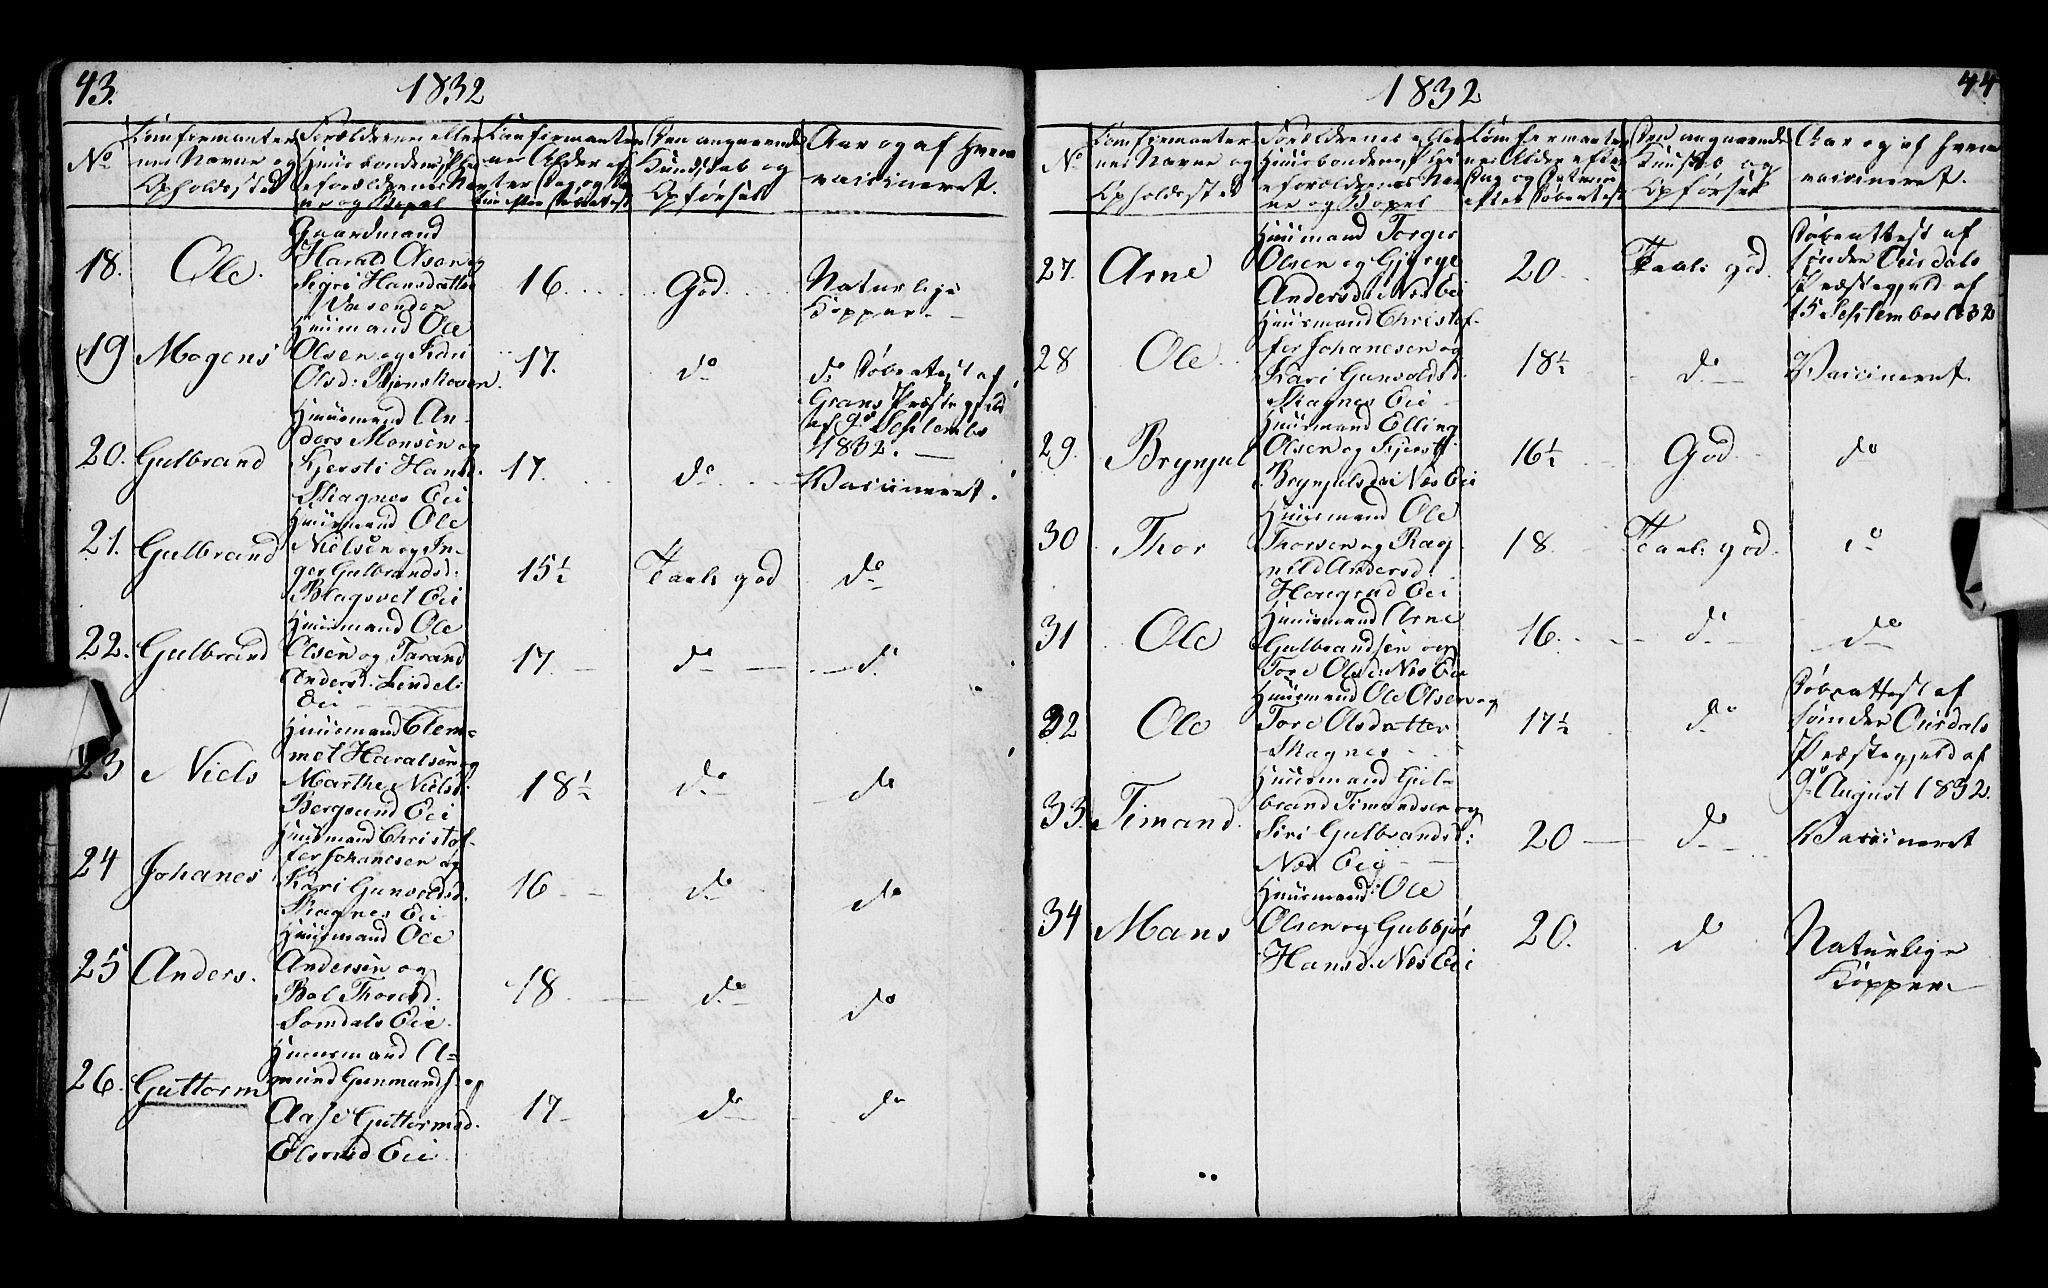 43. 1832
No
Confirmanter-
nes Navne og
Opholdssted
Forældrenes eller
Huusbondens, Plei-
eforældrenes Nav-
ne og Bopel
Confirmanter-
nes Alder ef-
ter Dag og Da-
tum efter Døbeattest
Den angaaende
Kundskab og
Opførsel
Aar og af hvem
vaccineret.
18. Ole.
Gaardmand
Harald Olsen og
Sigri Hansdatter
16.
God
Naturlige
Kopper
19 Mogens
Huusmand Ole
Olsen og
Olsd:
17.
do
do Døbeattest af
Grans Præstegjeld
af 9de Septembr
1832.
20. Gulbrand
Huusmand An-
ders Monsen og
Kjersti Hansd.
Skagnes Eie
17.
do
Vaccineret.
21. Gulbrand
Huusmand Ole
Nielsen og In-
ger Gulbrandsd:
Blagsvet Eie
15½
Taal: god
do
22. Gulbrand
Huusmand Ole
Olsen og Tarand
Andersd. Lindel:
Eie
17
do
do
23 Niels
Huusmand Clem-
met Haralsen og
Marthe Nielsd:
Bergsund Eie
18½
do
do
24 Johanes
Huusmand Christof-
fer Johanesen og
Kari Gunvoldsd.
Skagnes Eie
16
do
do
25 Anders.
Huusmand Ole
Andersen og
Bol Thoresd.
Somdals Eie.
18
do
do
26. Guttorm
Huusmand A-
mund Gunmands. og
Aase Guttormsd.
Elsrud Eie
17
do
do
1832 44
No
Confirmanter-
nes Navne og
Opholdssted
Forældrenes eller
Huusbondens, Plei-
eforældrenes Nav-
ne og Bopel
Confirmanter-
nes Alder efter
Dag og Datum
efter Døbeattest
Den angaaende
Kundskab og
Opførsel
Aar og af hvem
vaccineret.
27. Arne
Huusmand Torger
Olsen og Gjørge
Andersd: Næs Eei
20
Taal: god.
Døbeattest af
Sønder Ourdals
Præstegjeld af
15 September 1832
28 Ole
Huusmand Christof-
fer Johanesen og
Kari Gunvoldsd.
Skagnes Eie
18½
do
Vaccineret.
29. Brynjul
Huusmand Elling
Olsen og Kjersti
Brynjulsd: Næs Eei
16½
God
do
30 Thor
Huusmand Ole
Thorsen og Rag-
nild Andersd.
Eei
18
Taal: god.
do
31 Ole
Huusmand Arne
Gulbrandsen og
Tore Olsd: Næs Eie
16.
do
do
32 Ole
Huusmand Ole Olsen og
Tore Olsdatter
Skagnes
17½
do
Døbeattest af
Sønder Ourdals
Præstegjeld af
9de August 1832.
33. Timand.
Huusmand Gul-
brand Timandsen og
Siri Gulbrandsd:
Næs Eie
20
do
Vaccineret
34 Mans
Huusmand Ole
Olsen og Gubbjør
Hansd. Næs Eei
20.
do
Naturlige
Kopper.